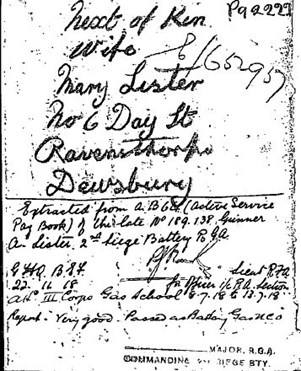 Next of Kin Pg 2229
Wife E/652957
Mary Lister
No 6 Day St
Ravensthorpe
Dewsbury
Extracted from A.B 64 (Active Service
Pay Book) of the late No 189.138 Gunner
A. Lister, 2nd Siege Battery R.G.A.
Lieut R.F.A.
G.H.Q. B.E.F. for Officer i/c R.A. Section
22.11.18
III Corps Gas School 8.7.18 to 13.7.18
Report - Very good. Passed as Battery Gas NCO
MAJOR, R.G.A.
COMMANDING SIEGE BTY.